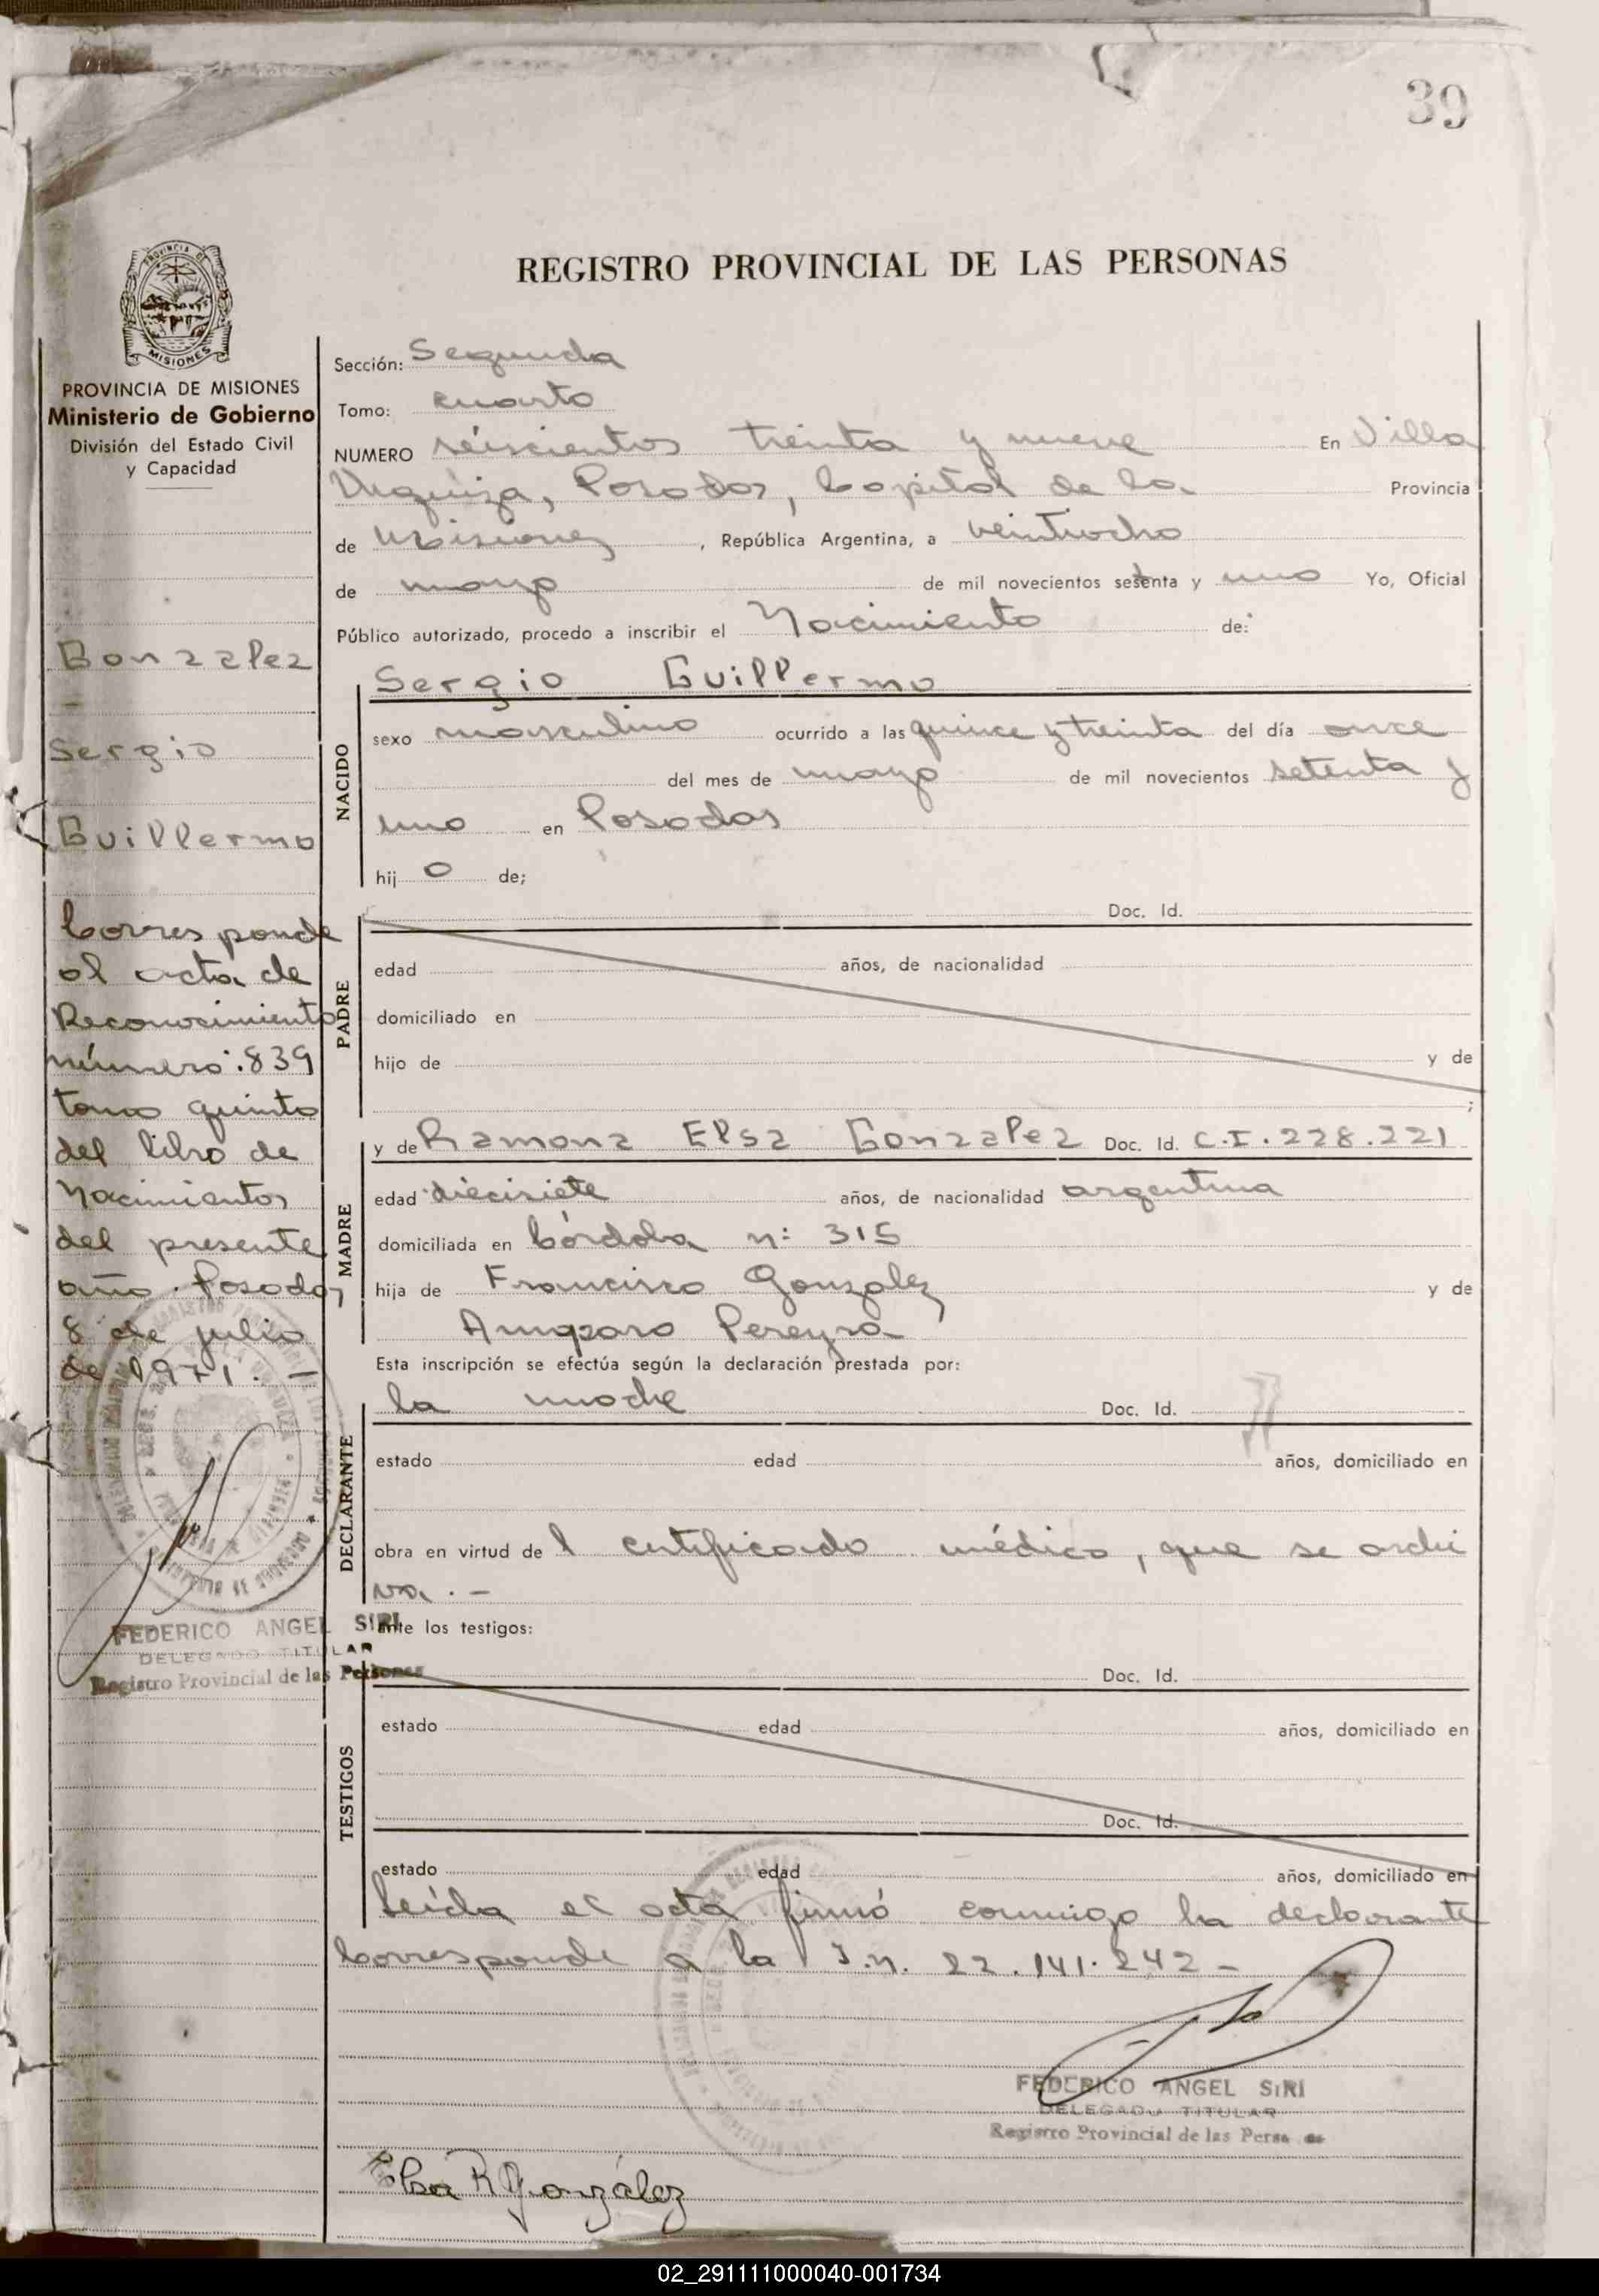 39
REGISTRO PROVINCIAL DE LAS PERSONAS
PROVINCIA DE
MISIONES
PROVINCIA DE MISIONES
Ministerio de Gobierno
División del Estado Civil
y Capacidad
Gonzalez
Sergio
Guillermo
Corresponde
al acta de
Reconocimiento
número: 839
tomo quinto
del libro de
Nacimientos
del presente
año. Posadas
8 de julio
de 1971. -
FEDERICO ANGEL SIRI
DELEGADO TITULAR
Registro Provincial de las Personas
Sección: Segunda
Tomo: cuarto
NUMERO seiscientos treinta y nueve En Villa
Urquiza, Posadas, Capital de la Provincia
de Misiones, República Argentina, a veintiocho
de mayo de mil novecientos setenta y uno Yo, Oficial
Público autorizado, procedo a inscribir el Nacimiento de:
Sergio Guillermo
NACIDO
sexo masculino ocurrido a las quince y treinta del día once
del mes de mayo de mil novecientos setenta y
uno en Posadas
hij o de;
PADRE
Doc. Id.
edad años, de nacionalidad
domiciliado en
hijo de y de
;
MADRE
y de Ramona Elsa Gonzalez Doc. Id. C.I. 228.221
edad diecisiete años, de nacionalidad argentina
domiciliada en Córdoba n: 315
hija de Francisco Gonzalez y de
Amparo Pereyra
Esta inscripción se efectúa según la declaración prestada por:
DECLARANTE
la madre Doc. Id.
estado edad años, domiciliado en
obra en virtud de l certificado médico, que se archi
va. -
Ante los testigos:
TESTIGOS
Doc. Id.
estado edad años, domiciliado en
Doc. Id.
estado edad años, domiciliado en
Leída el acta firmó conmigo la declarante
Corresponde a la I.n. 22.141.242 -
FEDERICO ANGEL SIRI
DELEGADO TITULAR
Registro Provincial de las Perso
Elsa R González
02_291111000040-001734